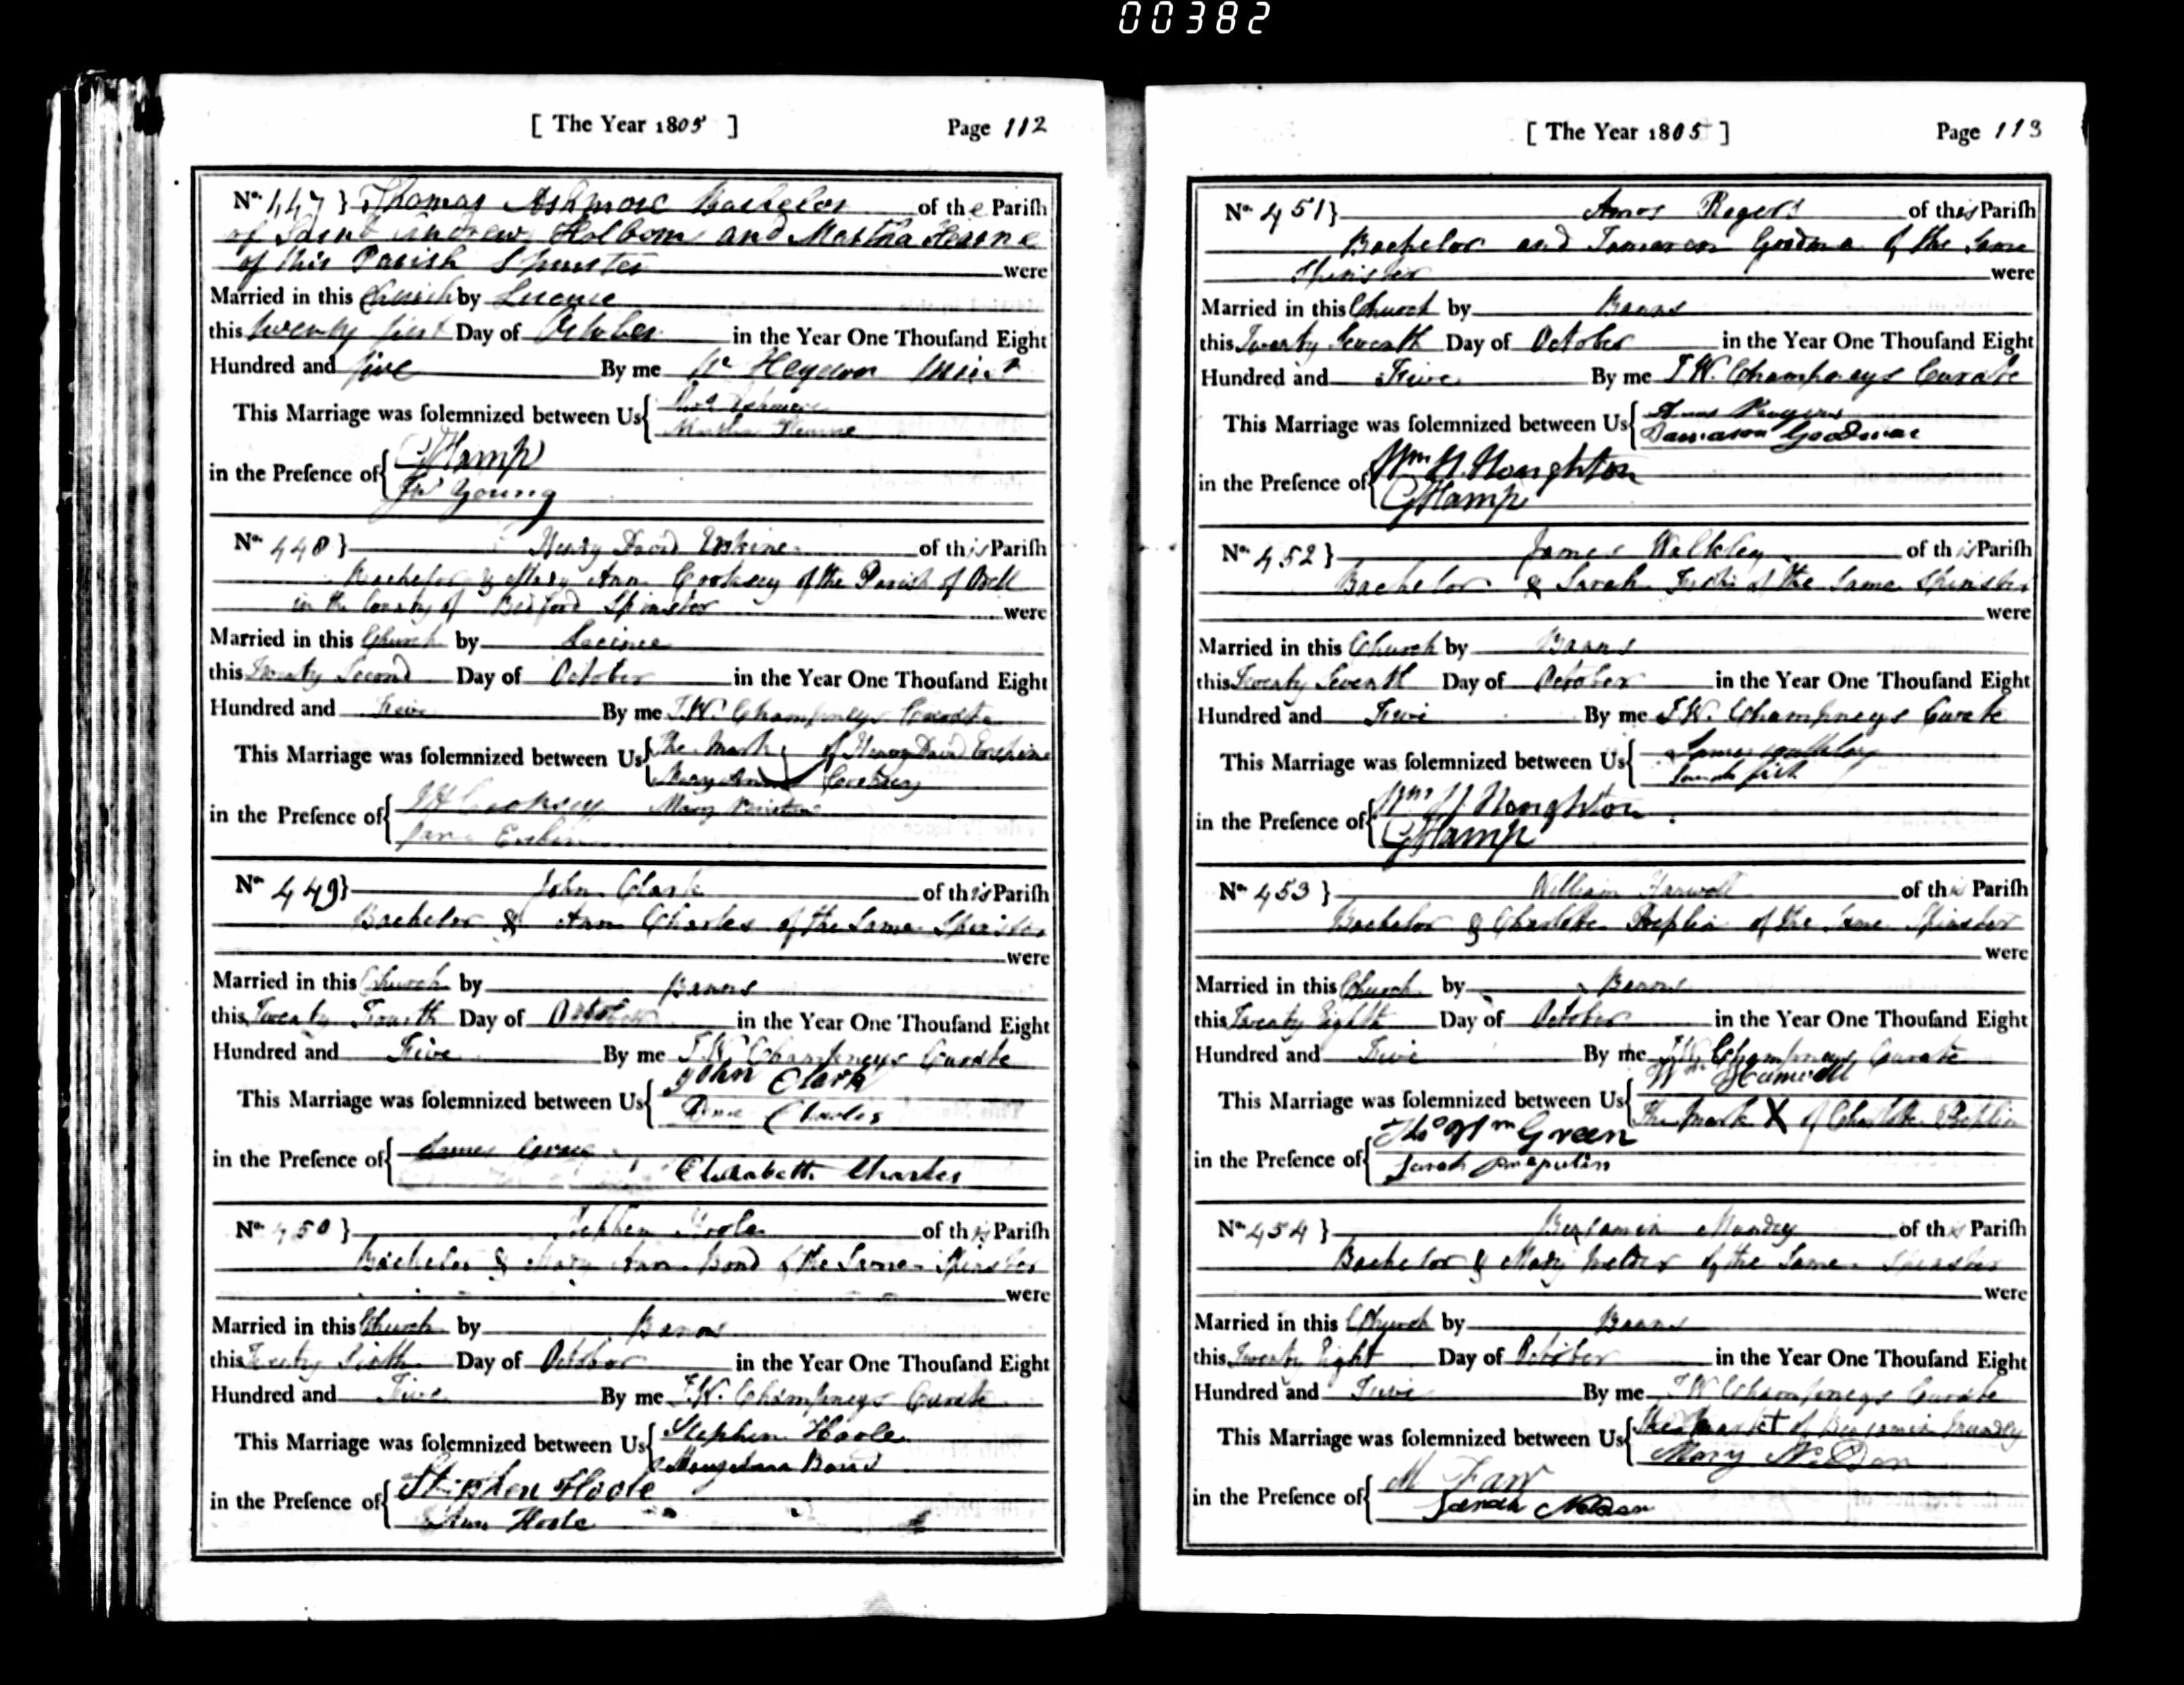 00382
[ The Year 1805 ]
Page 112
No. 447 } Thomas Ashmore Bachelor of the Parish
of Saint Andrew Holborn and Martha Hearne
of this Parish Spinster were
Married in this Church by Licence
this twenty first Day of October in the Year One Thousand Eight
Hundred and five By me Wm Heydon
This Marriage was solemnized between Us { Thos Ashmore
Martha Hearne
in the Presence of { G Hamp
Jno Young
No. 448 } Henry David Erskine of this Parish
Bachelor & Mary Ann Cooksey of the Parish of
in the County of Bedford Spinster were
Married in this Church by Licence
this Twenty Second Day of October in the Year One Thousand Eight
Hundred and Five By me T.W. Champneys Curate
This Marriage was solemnized between Us { The Mark of Henry David Erskine
Mary Ann Cooksey
in the Presence of { Cooksey Mary
Jane
No. 449 } John Clark of this Parish
Bachelor & Ann Charles of the Same Spinster
were
Married in this Church by Banns
this Twenty Fourth Day of October in the Year One Thousand Eight
Hundred and Five By me T.W. Champneys Curate
This Marriage was solemnized between Us { John Clark
Charles
in the Presence of { James
Elizabeth Charles
No. 450 } Stephen Hoole of this Parish
Bachelor & Mary Ann Bond of the Same Spinster
were
Married in this Church by Banns
this Twenty Sixth Day of October in the Year One Thousand Eight
Hundred and Five By me T.W. Champneys Curate
This Marriage was solemnized between Us { Stephen Hoole
Mary Ann Bond
in the Presence of { Stephen Hoole
Ann Hoole
[ The Year 1805 ]
Page 113
No. 451 } Amos Rogers of this Parish
Bachelor and of the Same
Spinster were
Married in this Church by Banns
this Twenty Seventh Day of October in the Year One Thousand Eight
Hundred and Five By me T.W. Champneys Curate
This Marriage was solemnized between Us { Amos
Goodman
in the Presence of { Wm H. Houghton
G Hamp
No. 452 } James Walkley of this Parish
Bachelor & Sarah of the Same Spinster
were
Married in this Church by Banns
this Twenty Seventh Day of October in the Year One Thousand Eight
Hundred and Five By me T.W. Champneys Curate
This Marriage was solemnized between Us { James Walkley
Sarah
in the Presence of { Wm H Houghton
G Hamp
No. 453 } William of this Parish
Bachelor & Charlotte of the Same Spinster
were
Married in this Church by Banns
this Twenty Eighth Day of October in the Year One Thousand Eight
Hundred and Five By me T.W. Champneys Curate
This Marriage was solemnized between Us { Wm
The Mark X of Charlotte
in the Presence of { Thos Wm Green
Sarah
No. 454 } Benjamin Mundey of this Parish
Bachelor & Mary of the Same Spinster
were
Married in this Church by Banns
this Twenty Eight Day of October in the Year One Thousand Eight
Hundred and Five By me T W Champneys Curate
This Marriage was solemnized between Us { The Mark + of Benjamin Mundey
Mary
in the Presence of { M Farr
Sarah